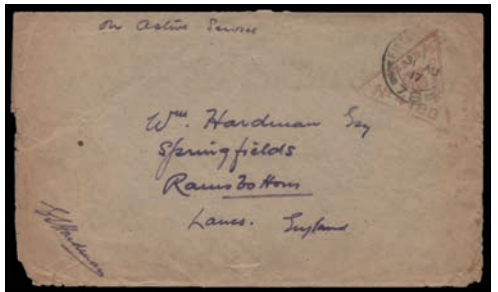 On Active Service
Wm. Hardman Esq
Springfields
Ramsbottom
Lancs. England
Hardman